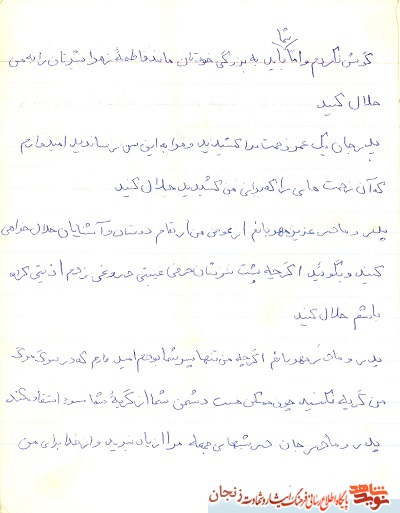 شما
گوش نکردم و اما باید به بزرگی خودتان مانند فاطمهٔ زهرا شیرتان را به من
حلال کنید
پدر جان یک عمر زحمت مرا کشیدید و مرا به این سن رساندید امیدوارم
که آن زحمت هایی را که برای من کشیدید حلال کنید
پدر و مادر عزیز و مهربانم از عوض من از تمام دوستان و آشنایان حلال خواهی
کنید و بگوئید اگر چه پشت سرتان حرفی غیبتی دروغی زدم اذیتی کرده
باشم حلال کنید
پدر و مادر مهربانم اگر چه من تنها پسر شما بودم امید وارم که در سوگ مرگ
من گریه نکنید چون ممکن هست دشمن شما از گریهٔ شما سوء استفاده کند
پدر و مادر جان در شبهای جمعه مرا از یاد نبرید و از خدا برای من
نوید شاهد
پایگاه اطلاع رسانی فرهنگ ایثار و شهادت زنجان